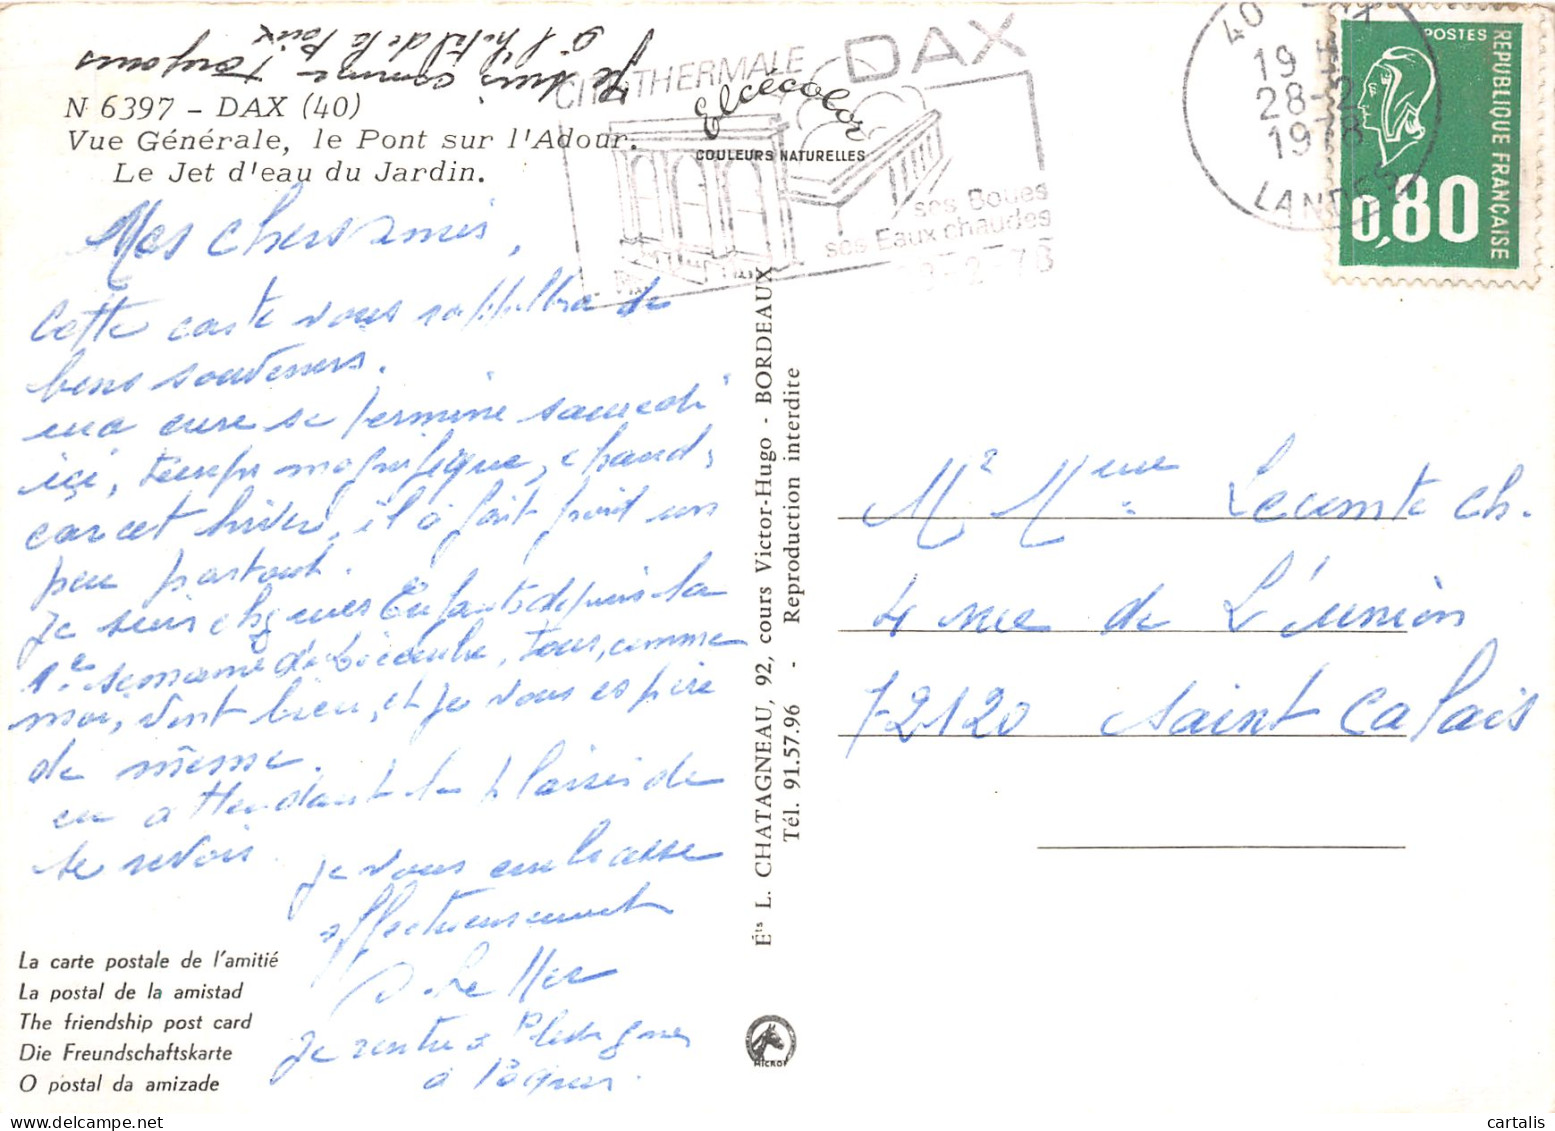 Je suis comme toujours
à l'hôtel de la Paix
N 6397 - DAX (40)
Vue Générale, le Pont sur l'Adour.
Le Jet d'eau du Jardin.
Elcécolor
COULEURS NATURELLES
THERMALE DAX
ses Boues
ses Eaux chaudes
40 DAX
19 H
28-2
1978
LANDES
POSTES
REPUBLIQUE FRANÇAISE
0,80
Mes chers amis,
Cette carte vous rappellera de
bons souvenirs.
ma cure se termine samedi
ici, temps magnifique, chaud,
car cet hiver, il a fait froid un
peu partout.
Je suis chez mes Enfants depuis la
1e semaine de Décembre, tous, comme
moi, vont bien, et je vous espère
de même.
en attendant le plaisir de
se revoir
je vous embrasse
affectueusement
Je rentre à
à Pâques.
Mr Mme Lecomte Ch.
4 rue de L'union
72120 Saint Calais
Éts L. CHATAGNEAU, 92, cours Victor-Hugo - BORDEAUX
Tél. 91.57.96 - Reproduction interdite
La carte postale de l'amitié
La postal de la amistad
The friendship post card
Die Freundschaftskarte
O postal da amizade
cartalis